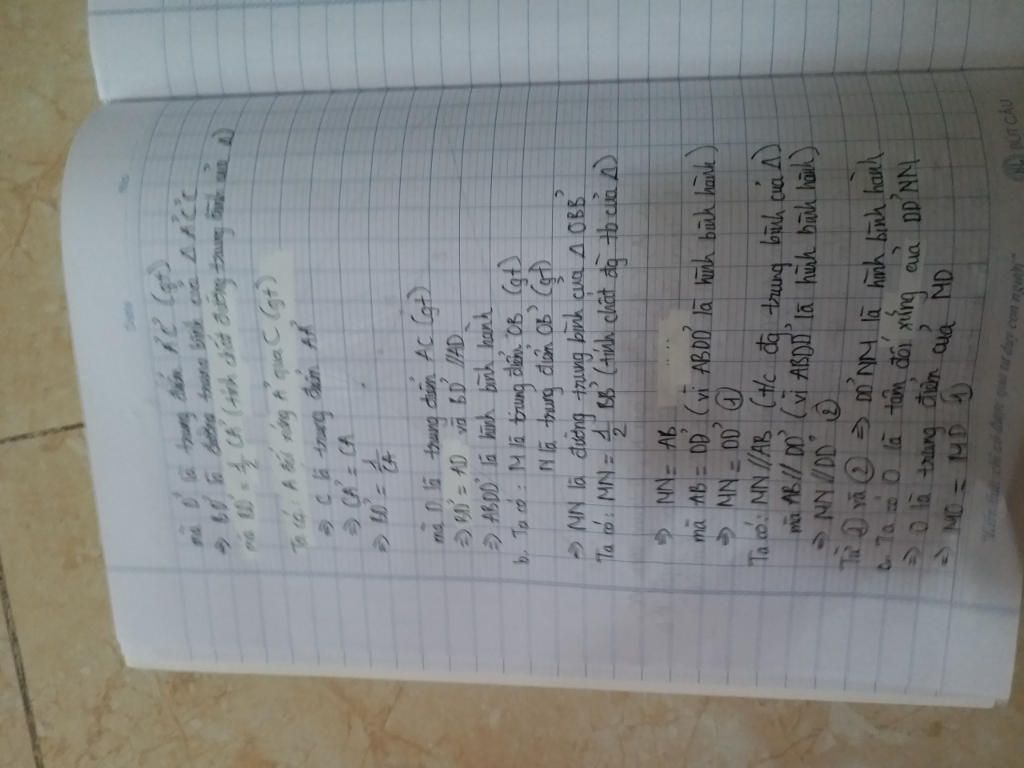 mà D' là trung điểm A'C' (gt)
⇒ BD' là đường trung bình của Δ A'C'C
mà BD' = 1/2 CA' (tính chất đường trung bình của Δ)
Ta có: A đối xứng A' qua C (gt)
⇒ C là trung điểm AA'
⇒ CA' = CA
⇒ BD' = 1/CA
mà D là trung điểm AC (gt)
⇒ BD' = AD và BD' // AD
⇒ ABDD' là hình bình hành
b. Ta có: M là trung điểm OB (gt)
N là trung điểm OB' (gt)
⇒ MN là đường trung bình của Δ OBB'
Ta có: MN = 1/2 BB' (tính chất đg tb của Δ)
⇒ MN = AB
mà AB = DD' (vì ABDD' là hình bình hành)
⇒ MN = DD' ①
Ta có: MN // AB (t/c đg trung bình của Δ)
mà AB // DD' (vì ABDD' là hình bình hành)
⇒ MN // DD' ②
Từ ① và ② ⇒ DD'NM là hình bình hành
c. Ta có O là tâm đối xứng của DD'NM
⇒ O là trung điểm của MD
⇒ MO = MD ①
BÚT CÂU